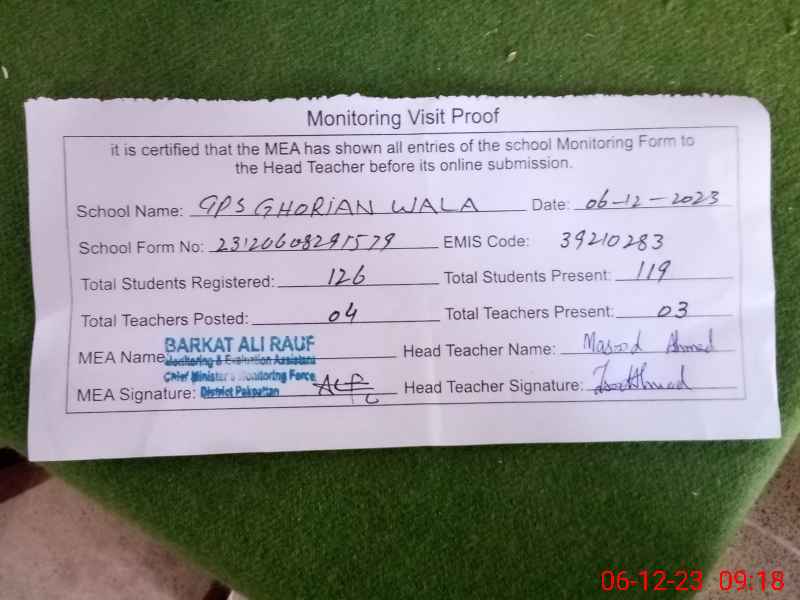 Monitoring Visit Proof
it is certified that the MEA has shown all entries of the school Monitoring Form to
the Head Teacher before its online submission.
School Name: GPS GHORIAN WALA Date: 06-12-2023
School Form No: 23120608291579 EMIS Code: 39210283
Total Students Registered: 126 Total Students Present: 119
Total Teachers Posted: 04 Total Teachers Present: 03
MEA Name BARKAT ALI RAUF Head Teacher Name: Masood Ahmed
Monitoring & Evaluation Assistant
Chief Minister's Monitoring Force
MEA Signature: District Pakpattan Head Teacher Signature:
06-12-23 09:18